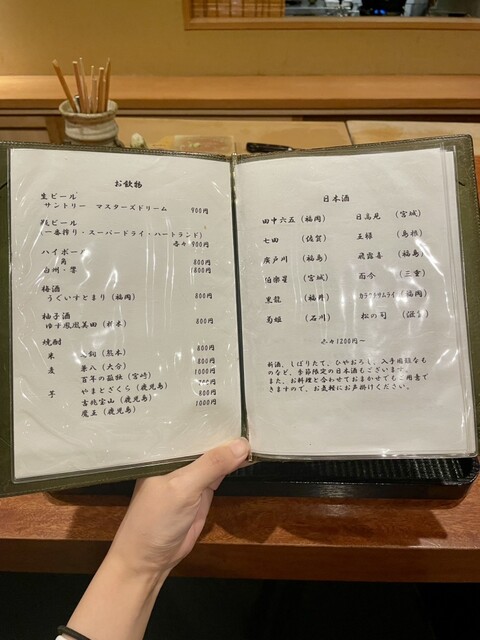 お飲物
生ビール
サントリー マスターズドリーム 900円
瓶ビール
(一番搾り・スーパードライ・ハートランド)
各々 900円
ハイボール
角 800円
白州・響 1600円
梅酒
うぐいすとまり(福岡) 800円
柚子酒
ゆず鳳凰美田(栃木) 800円
焼酎
米 (熊本) 800円
麦 兼八(大分) 1000円
百年の孤独(宮崎)
芋 やまとざくら(鹿児島) 800円
吉兆宝山(鹿児島) 1000円
魔王(鹿児島)
日本酒
田中六五(福岡) 日高見(宮城)
七田(佐賀) 王祿(島根)
廣戸川(福島) 飛露喜(福島)
伯楽星(宮城) 而今(三重)
黒龍(福井) カラクチサムライ(福岡)
菊姫(石川) 松の司(滋賀)
各々1200円〜
新酒、しぼりたて、ひやおろし、入手困難なも
のなど、季節限定の日本酒もございます。
また、お料理と合わせておまかせでもご用意で
きますので、お気軽にお声掛けください。